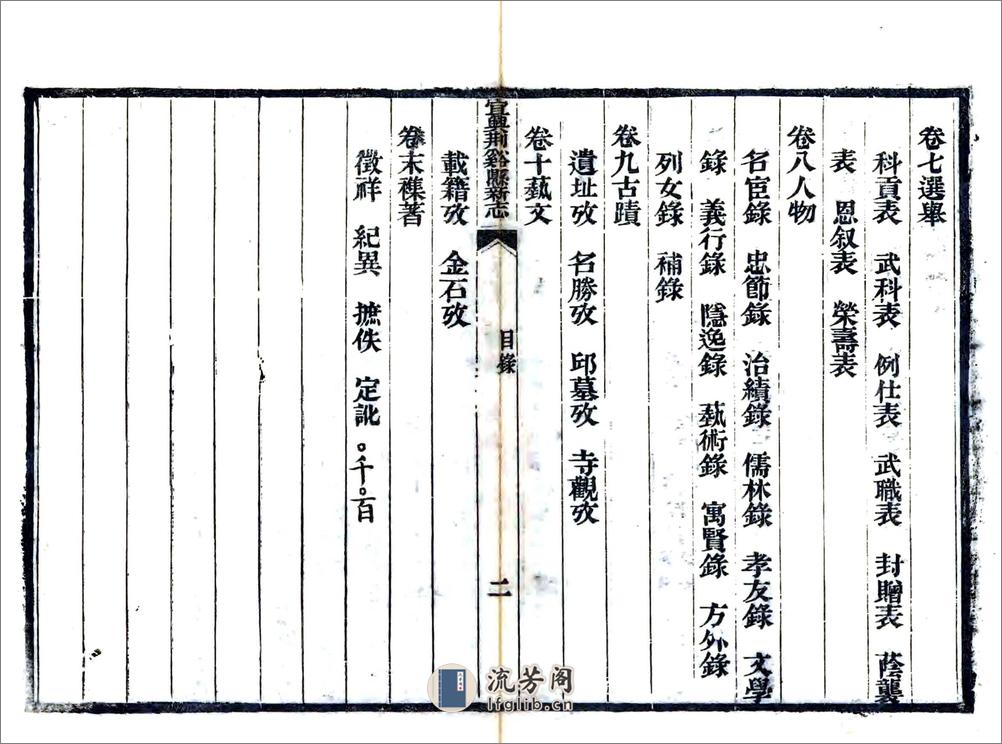 卷七選舉
科貢表 武科表 例仕表 武職表 封贈表 蔭襲
表 恩叙表 榮壽表
卷八人物
名宦錄 忠節錄 治績錄 儒林錄 孝友錄 文學
錄 義行錄 隱逸錄 藝術錄 寓賢錄 方外錄
列女錄 補錄
卷九古蹟
遺址攷 名勝攷 邱墓攷 寺觀攷
卷十藝文
宜興荆谿縣新志 目錄 二
載籍攷 金石攷
卷末襍著
徵祥 紀異 摭佚 定訛
流芳阁
lfglib.cn